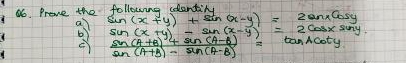 Q6. Prove the following identity
a) sin (x + y) + sin (x - y) = 2 sinx Cosy
b) sin (x + y) - sin (x - y) = 2 Cosx siny.
c) sin (A + B) + sin (A - B) = tan A Coty.
sin (A + B) - sin (A - B)